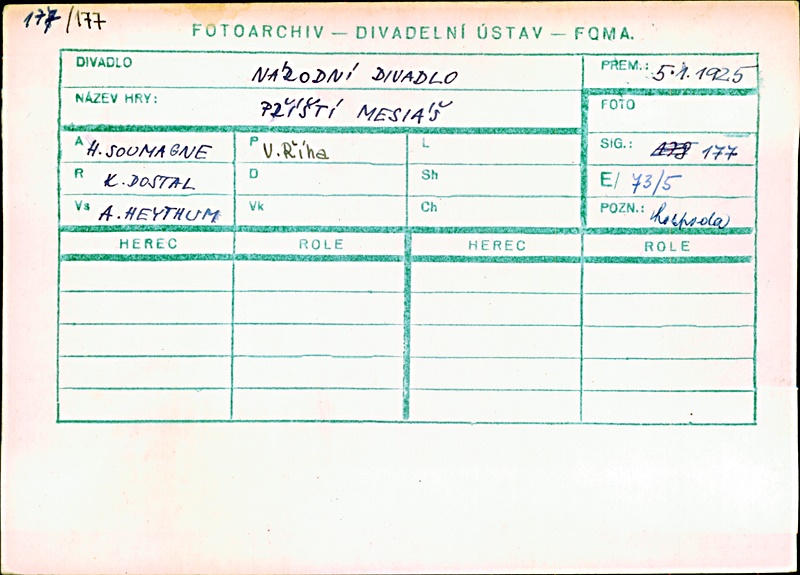 177/177
FOTOARCHIV — DIVADELNÍ ÚSTAV — FOMA.
DIVADLO NÁRODNÍ DIVADLO PREM.: 5.1.1925
NÁZEV HRY: PŘÍŠTÍ MESIÁŠ FOTO
A H. SOUMAGNE P V. Říha L SIG.: 178 177
R K. DOSTAL D Sh E/ 73/5
Vs A. HEYTHUM Vk Ch POZN.: hospoda
HEREC ROLE HEREC ROLE